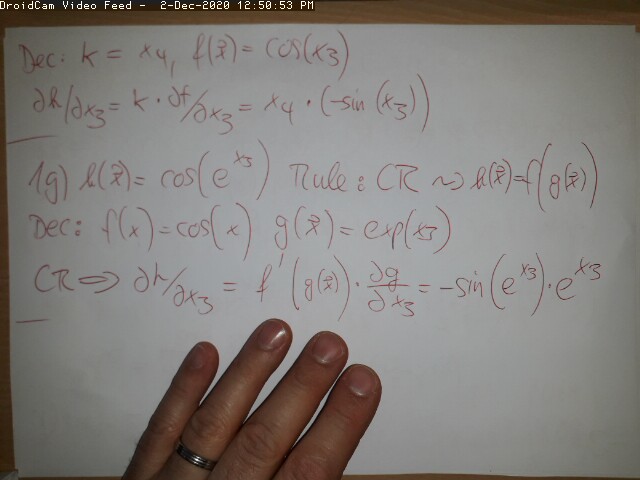 DroidCam Video Feed - 2-Dec-2020 12:50:53 PM
Dec: k = x₄, f(x⃗) = cos(x₃)
∂h/∂x₃ = k · ∂f/∂x₃ = x₄ · (-sin(x₃))
1g) h(x⃗) = cos(e^x₃) Rule: CR ⤳ h(x⃗) = f(g(x⃗))
Dec: f(x) = cos(x) g(x⃗) = exp(x₃)
CR ⇒ ∂h/∂x₃ = f'(g(x⃗)) · ∂g/∂x₃ = -sin(e^x₃) · e^x₃